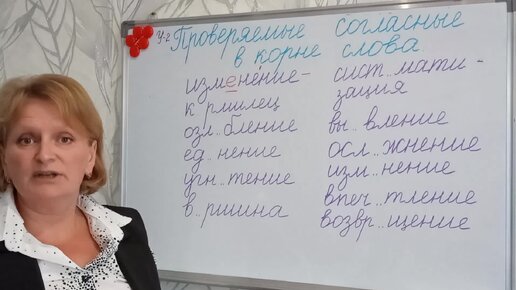 У-2 Проверяемые согласные
в корне слова
изменение-
к рмилец
озл..бление
ед..нение
угн..тение
в..ршина
сист..мати-
зация
вы..вление
осл..жнение
изм..нение
впеч..тление
возвр..щение